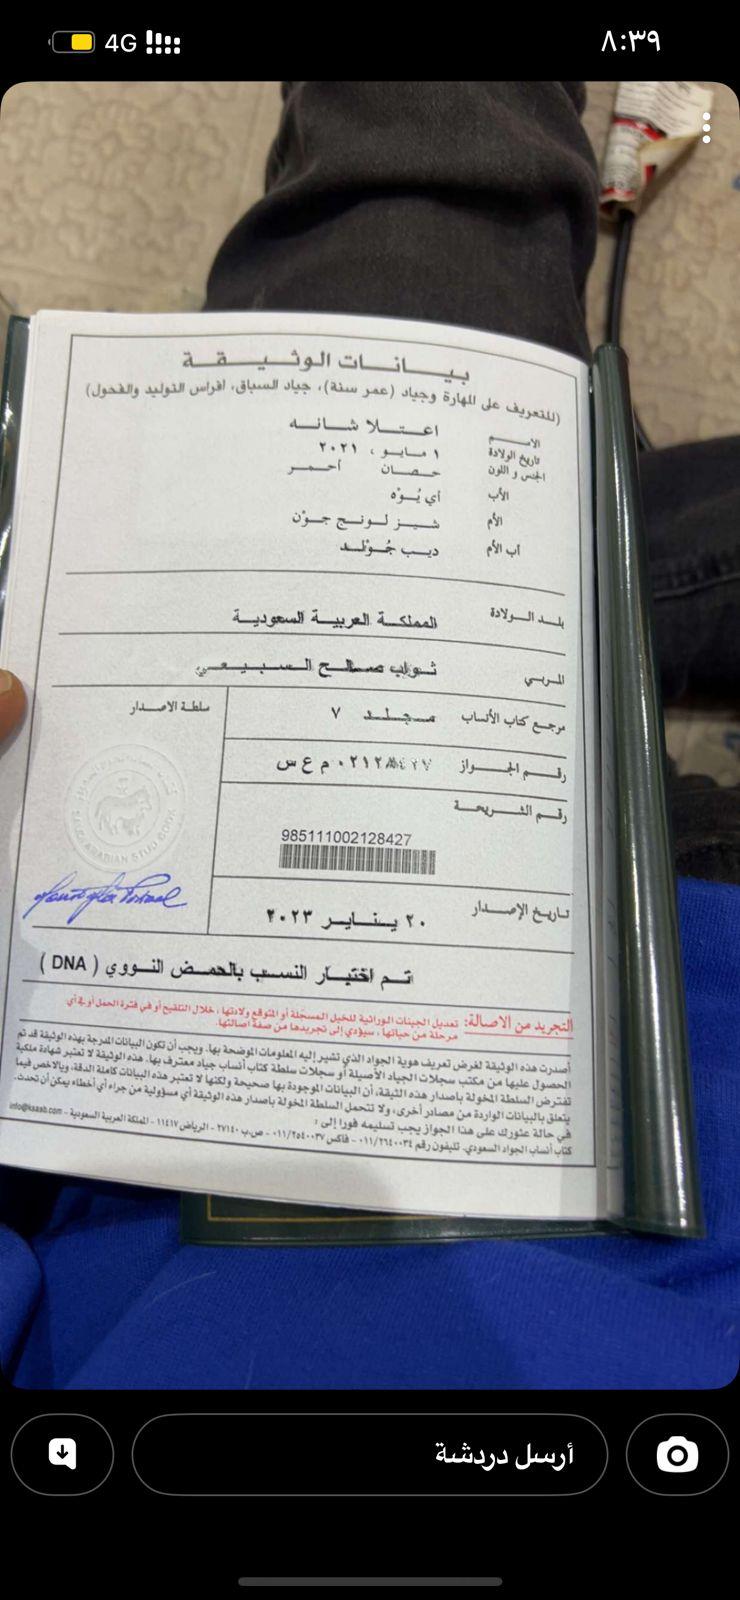 ٨:٣٩
4G
بيانات الوثيقة
(للتعريف على المهارة وجياد (عمر سنة)، جياد السباق، افراس التوليد والفحول)
الاسم اعتلا شانه
تاريخ الولادة ١ مايو ، ٢٠٢١
الجنس و اللون حصان أحمر
الأب أي يُوْه
الأم شيز لونج جوْن
أب الأم ديب جُوْلد
بلد الولادة المملكة العربية السعودية
المربي ثواب صالح السبيعي
مرجع كتاب الأنساب مجلد ٧
سلطة الاصدار
رقم الجواز م ع س
رقم الشريحة
985111002128427
SAUDI ARABIAN STUD BOOK
تاريخ الإصدار ٢٠ يناير ٢٠٢٣
تم اختيار النسب بالحمض النووي ( DNA )
التجريد من الاصالة: تعديل الجينات الوراثية للخيل المسجلة أو المتوقع ولادتها ، خلال التلقيح أو في فترة الحمل أو في أي
مرحلة من حياتها ، سيؤدي إلى تجريدها من صفة اصالتها.
أصدرت هذه الوثيقة لغرض تعريف هوية الجواد الذي تشير إليه المعلومات الموضحة بها. ويجب أن تكون البيانات المدرجة بهذه الوثيقة قد تم
الحصول عليها من مكتب سجلات الجياد الأصيلة أو سجلات سلطة كتاب أنساب جياد معترف بها. هذه الوثيقة لا تعتبر شهادة ملكية
تفترض السلطة المخولة باصدار هذه الثيقة، أن البيانات الموجودة بها صحيحة ولكنها لا تعتبر هذه البيانات كاملة الدقة، وبالاخص فيما
يتعلق بالبيانات الواردة من مصادر أخرى، ولا تتحمل السلطة المخولة باصدار هذه الوثيقة أي مسؤولية من جراء أي أخطاء يمكن أن تحدث.
في حالة عثورك على هذا الجواز يجب تسليمه فورا إلى :
كتاب أنساب الجواد السعودي. تليفون رقم ٠١١/٢٦٤٠٠٣٤ - فاكس ٠١١/٢٥٤٠٠٣٧ - ص.ب ٢٧١٤٠ - الرياض ١١٤١٧ - المملكة العربية السعودية - info@ksaab.com
أرسل دردشة